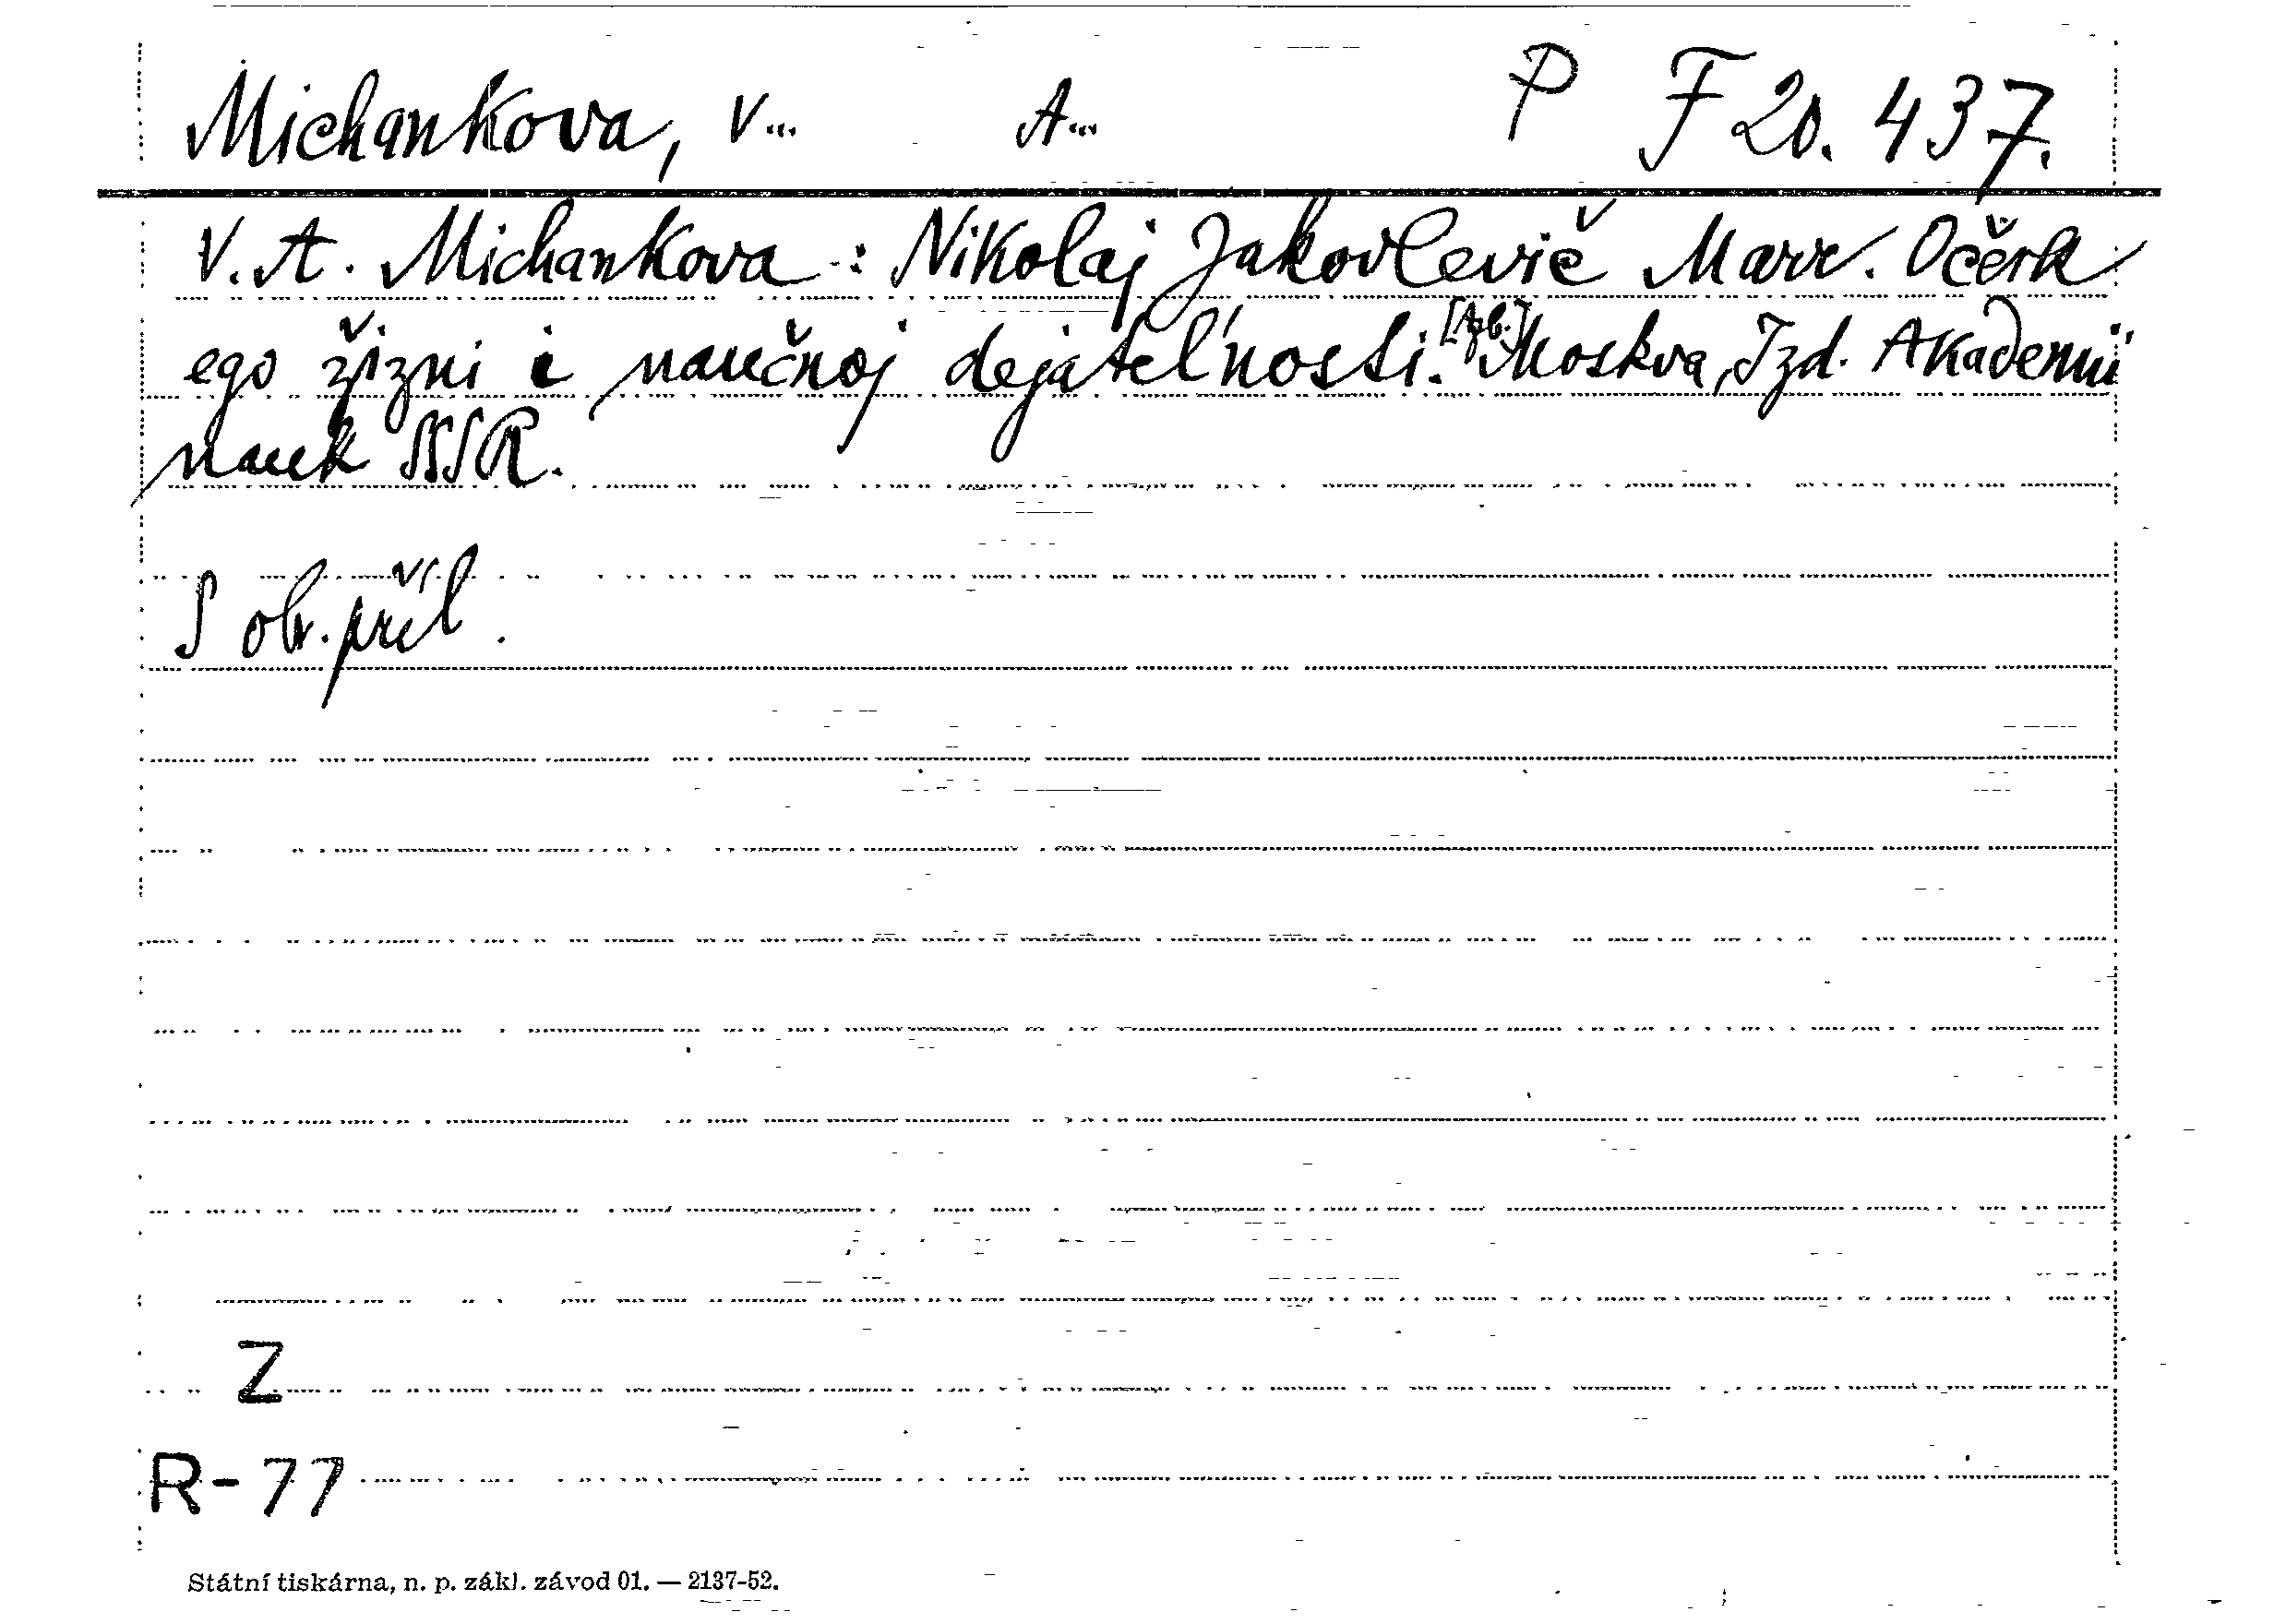 Michankova, V... A... P F 20.437.
V. A. Michankova : Nikolaj Jakovlevič Marr. Očerk
ego žizni i naučnoj dejatel'nosti. [Azb.] Moskva, Izd. Akademii
nauk SSSR.
S obr. příl.
Z
R-77
Státní tiskárna, n. p. zákl. závod 01. — 2137-52.